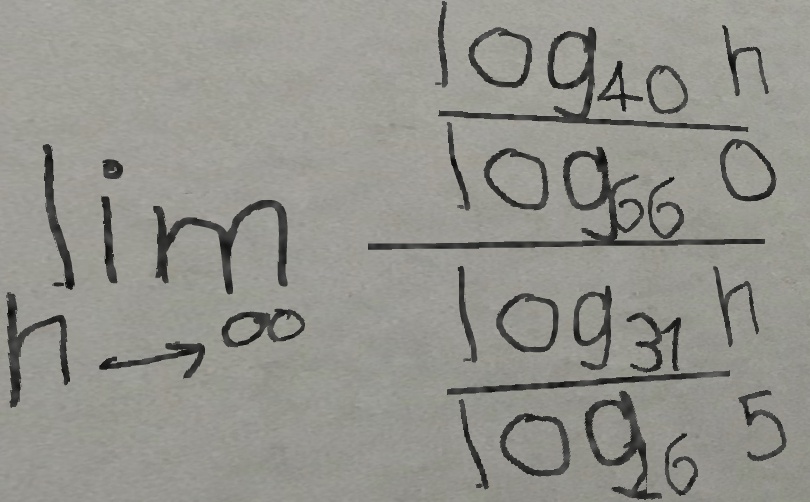 lim n→∞ \frac{\frac{log_{40} n}{log_{66} 0}}{\frac{log_{31} n}{log_{16} 5}}